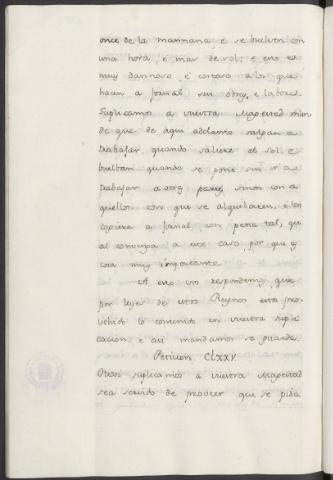 once de la mannana, e se buelven con
una hora, e mas de sol; e eno es
muy dannoso, e costoso a los que
hacen a jornal sus obras, e labores.
Suplicamos a vuestra Magestad man
de que de aqui adelante salgan a
trabajar quando saliere el sol, e
buelban quando se pone sin ir a
trabajar a otra parte sinon con a
quellos con que se alquilaren, e los
cogiere a jornal con pena tal, que
al convenga a este caso, por que es
cosa muy importante.
A eno vos respondemos, que
por leyes de estos Reynos esta pro
vehido lo contenido en vuestra supli
cacion, e asi mandamos se guarde.
Peticion CLXXV.
Otrosi suplicamos a vuestra Magestad
sea servido de proveer que se pida